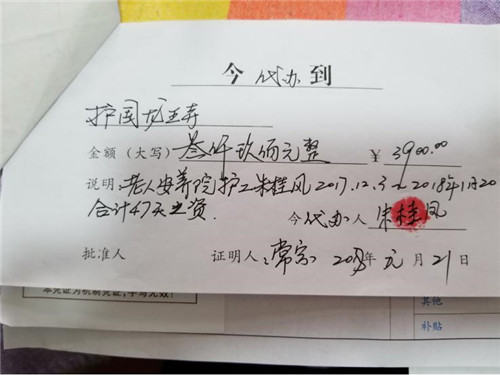 今代办到
护国龙王寺
金额（大写）叁仟玖佰元整 ￥3900.00
说明：老人安养院护工朱桂凤2017.12.3~2018年1月20
合计47天工资.
今代办人朱桂凤
批准人 证明人：常宗 2018年元月21日
其他
补贴